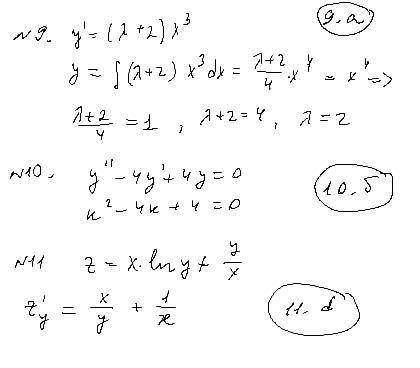 №9. y' = (λ+2) x³
9. a
y = ∫(λ+2) x³dx = λ+2/4 · x⁴ = x⁴ =>
λ+2/4 = 1 , λ+2=4, λ=2
№10. y'' - 4y' + 4y = 0
10. б
к² - 4к + 4 = 0
№11 z = x·ln y + y/x
z'y = x/y + 1/x
11. d